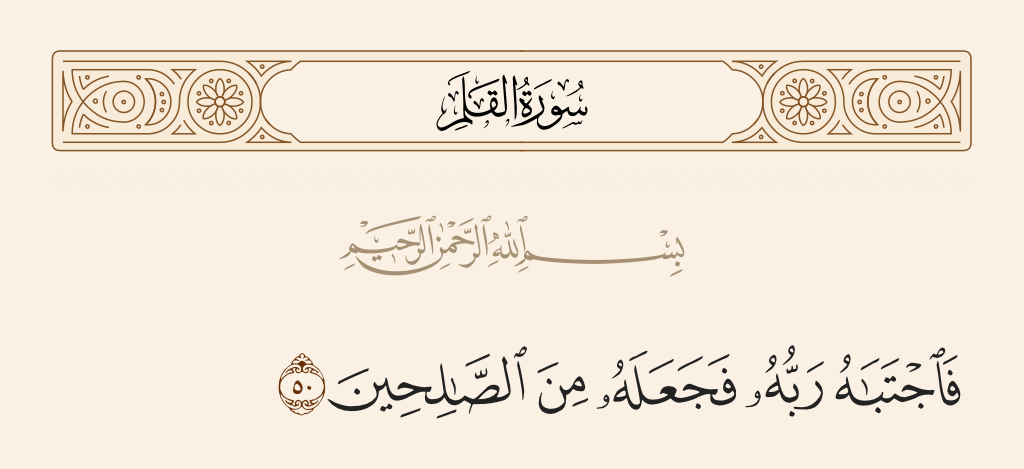 سُورَةُ القَلَمِ
بِسْمِ ٱللَّهِ ٱلرَّحْمَٰنِ ٱلرَّحِيمِ
فَٱجْتَبَٰهُ رَبُّهُۥ فَجَعَلَهُۥ مِنَ ٱلصَّٰلِحِينَ ٥٠